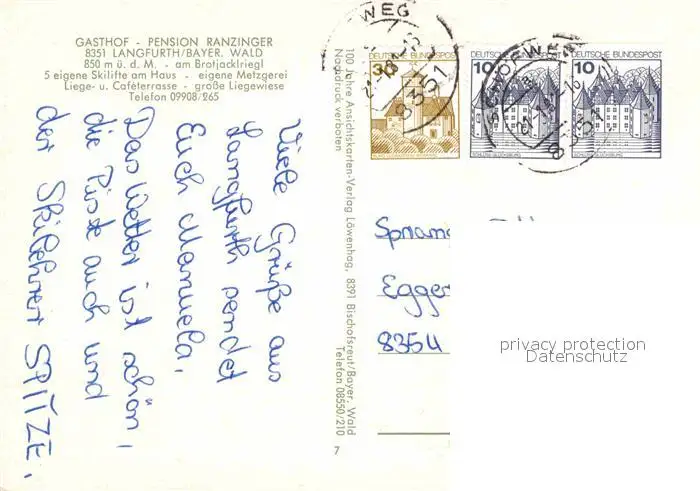 GASTHOF - PENSION RANZINGER
8351 LANGFURTH/BAYER. WALD
850 m ü. d. M. - am Brotjacklriegl
5 eigene Skilifte am Haus - eigene Metzgerei
Liege- u. Caféterrasse - große Liegewiese
Telefon 09908/265
Viele Grüße aus
Langfurth sendet
Euch Manuela,
Das Wetter ist schön,
die Piste auch und
der Skilehrer SPITZE.
100 Jahre Ansichtskarten-Verlag Löwenhag, 8391 Bischofsreut/Bayer. Wald
Nachdruck verboten
Telefon 08550/210
7
WEG
8351
DEUTSCHE BUNDESPOST
30
DEUTSCHE BUNDESPOST
10
SCHLOSS GLÜCKSBURG
SCHÖFWEG
8351
DEUTSCHE BUNDESPOST
10
SCHLOSS GLÜCKSBURG
Egger
8354
privacy protection
Datenschutz